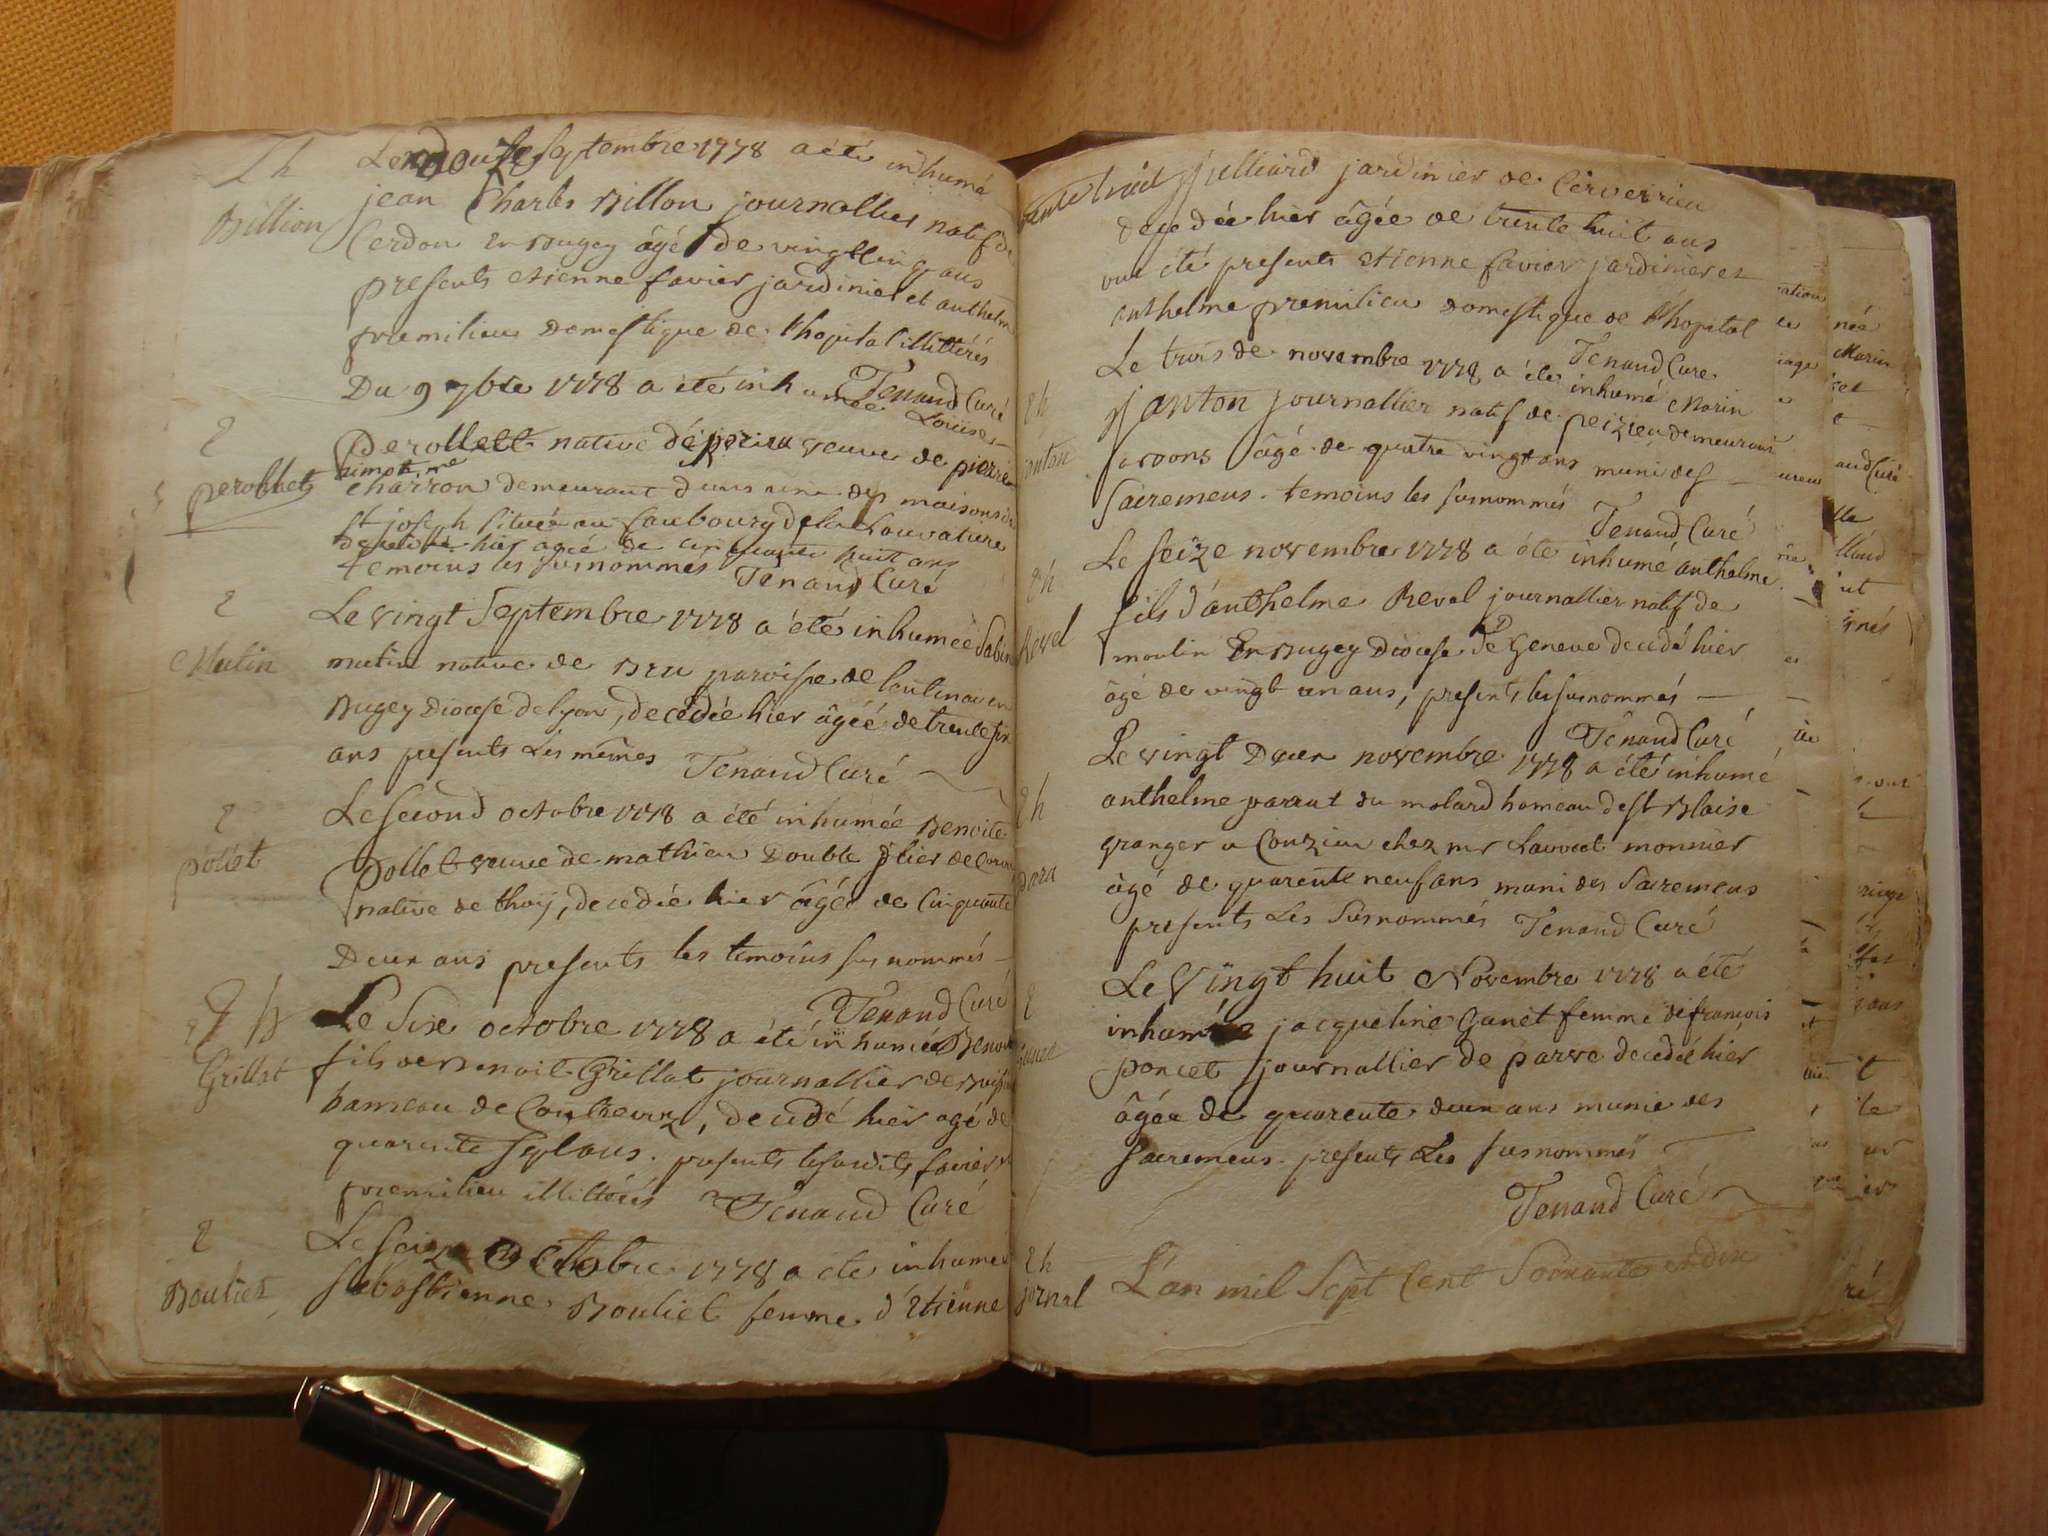 2 h
Billion
Le douze Septembre 1778 a été inhumé
jean Charles Billon journallier natif de
Cerdon En Bugey âgé de vingt cinq ans
presents etienne favier jardinier et anthelme
premilieu domestique de l'hopital illittérés
Tenaud Curé
2
perollets
Du 9 7bre 1778 a été inhumée Louise
Perollett native d'éperieu veuve de pierre
charron demeurant dans une des maisons de
St joseph située au faubourg de la Louvatiere
decedée hier agée de cinquante huit ans
temoins les susnommés Tenaud Curé
2
Mutin
Le vingt Septembre 1778 a été inhumée Sabine
mutin native de Bru paroisse de
Bugey Diocese de lyon, decedée hier âgéé de trente six
ans presents Les mêmes Tenaud Curé
2
pollet
Le second octobre 1778 a été inhumée Benoite
Pollet veuve de mathieu Double
native de thoy, decedée hier âgée de Cinquante
Deux ans presents les temoins sus nommés
Tenaud Curé
2 h
Grillat
Le Six octobre 1778 a été inhumée Benoit
fils de Benoit Grillat journallier de
hameau de , decedé hier agé de
quarente sept ans . presents lesdits favier et
premilieu illittérés Tenaud Curé
2
Bouliet
Le seize Octobre 1778 a été inhumée
sebastienne Bouliet femme d'Etienne
trente huit
Julliard jardinier de Cerverieu
decedée hier âgée de trente huit ans
ont été presents etienne favier jardinier et
anthelme premilieu domestique de l'hopital
Tenaud Curé
2 h
janton
Le trois de novembre 1778 a été inhumé Marin
Janton journallier natif de peizieu demeurant
âgé de quatre vingt ans muni des
Sacremens . temoins les susnommés
Tenaud Curé
2 h
Revel
Le seize novembre 1778 a été inhumé anthelme
fils d'anthelme Revel journallier natif de
moulin En Bugey Diocese De Geneve decedé hier
âgé de vingt un ans, presents les susnommés
Tenaud Curé
2 h
para
Le vingt Deux novembre 1778 a été inhumé
anthelme parrat du molard hameau de st Blaise
granger a Couzieu chez mr Lavocat monnier
âgé de quarente neuf ans muni des Sacremens
presents Les Susnommés Tenaud Curé
2
ganet
Le Vingt huit Novembre 1778 a été
inhumée jacqueline Ganet femme de francois
poncet journallier de parve decedée hier
âgée de quarente deux ans munie des
Sacremens . presents Les susnommés
Tenaud Curé
2 h
jornal
L'an mil Sept Cent Soixante et dix